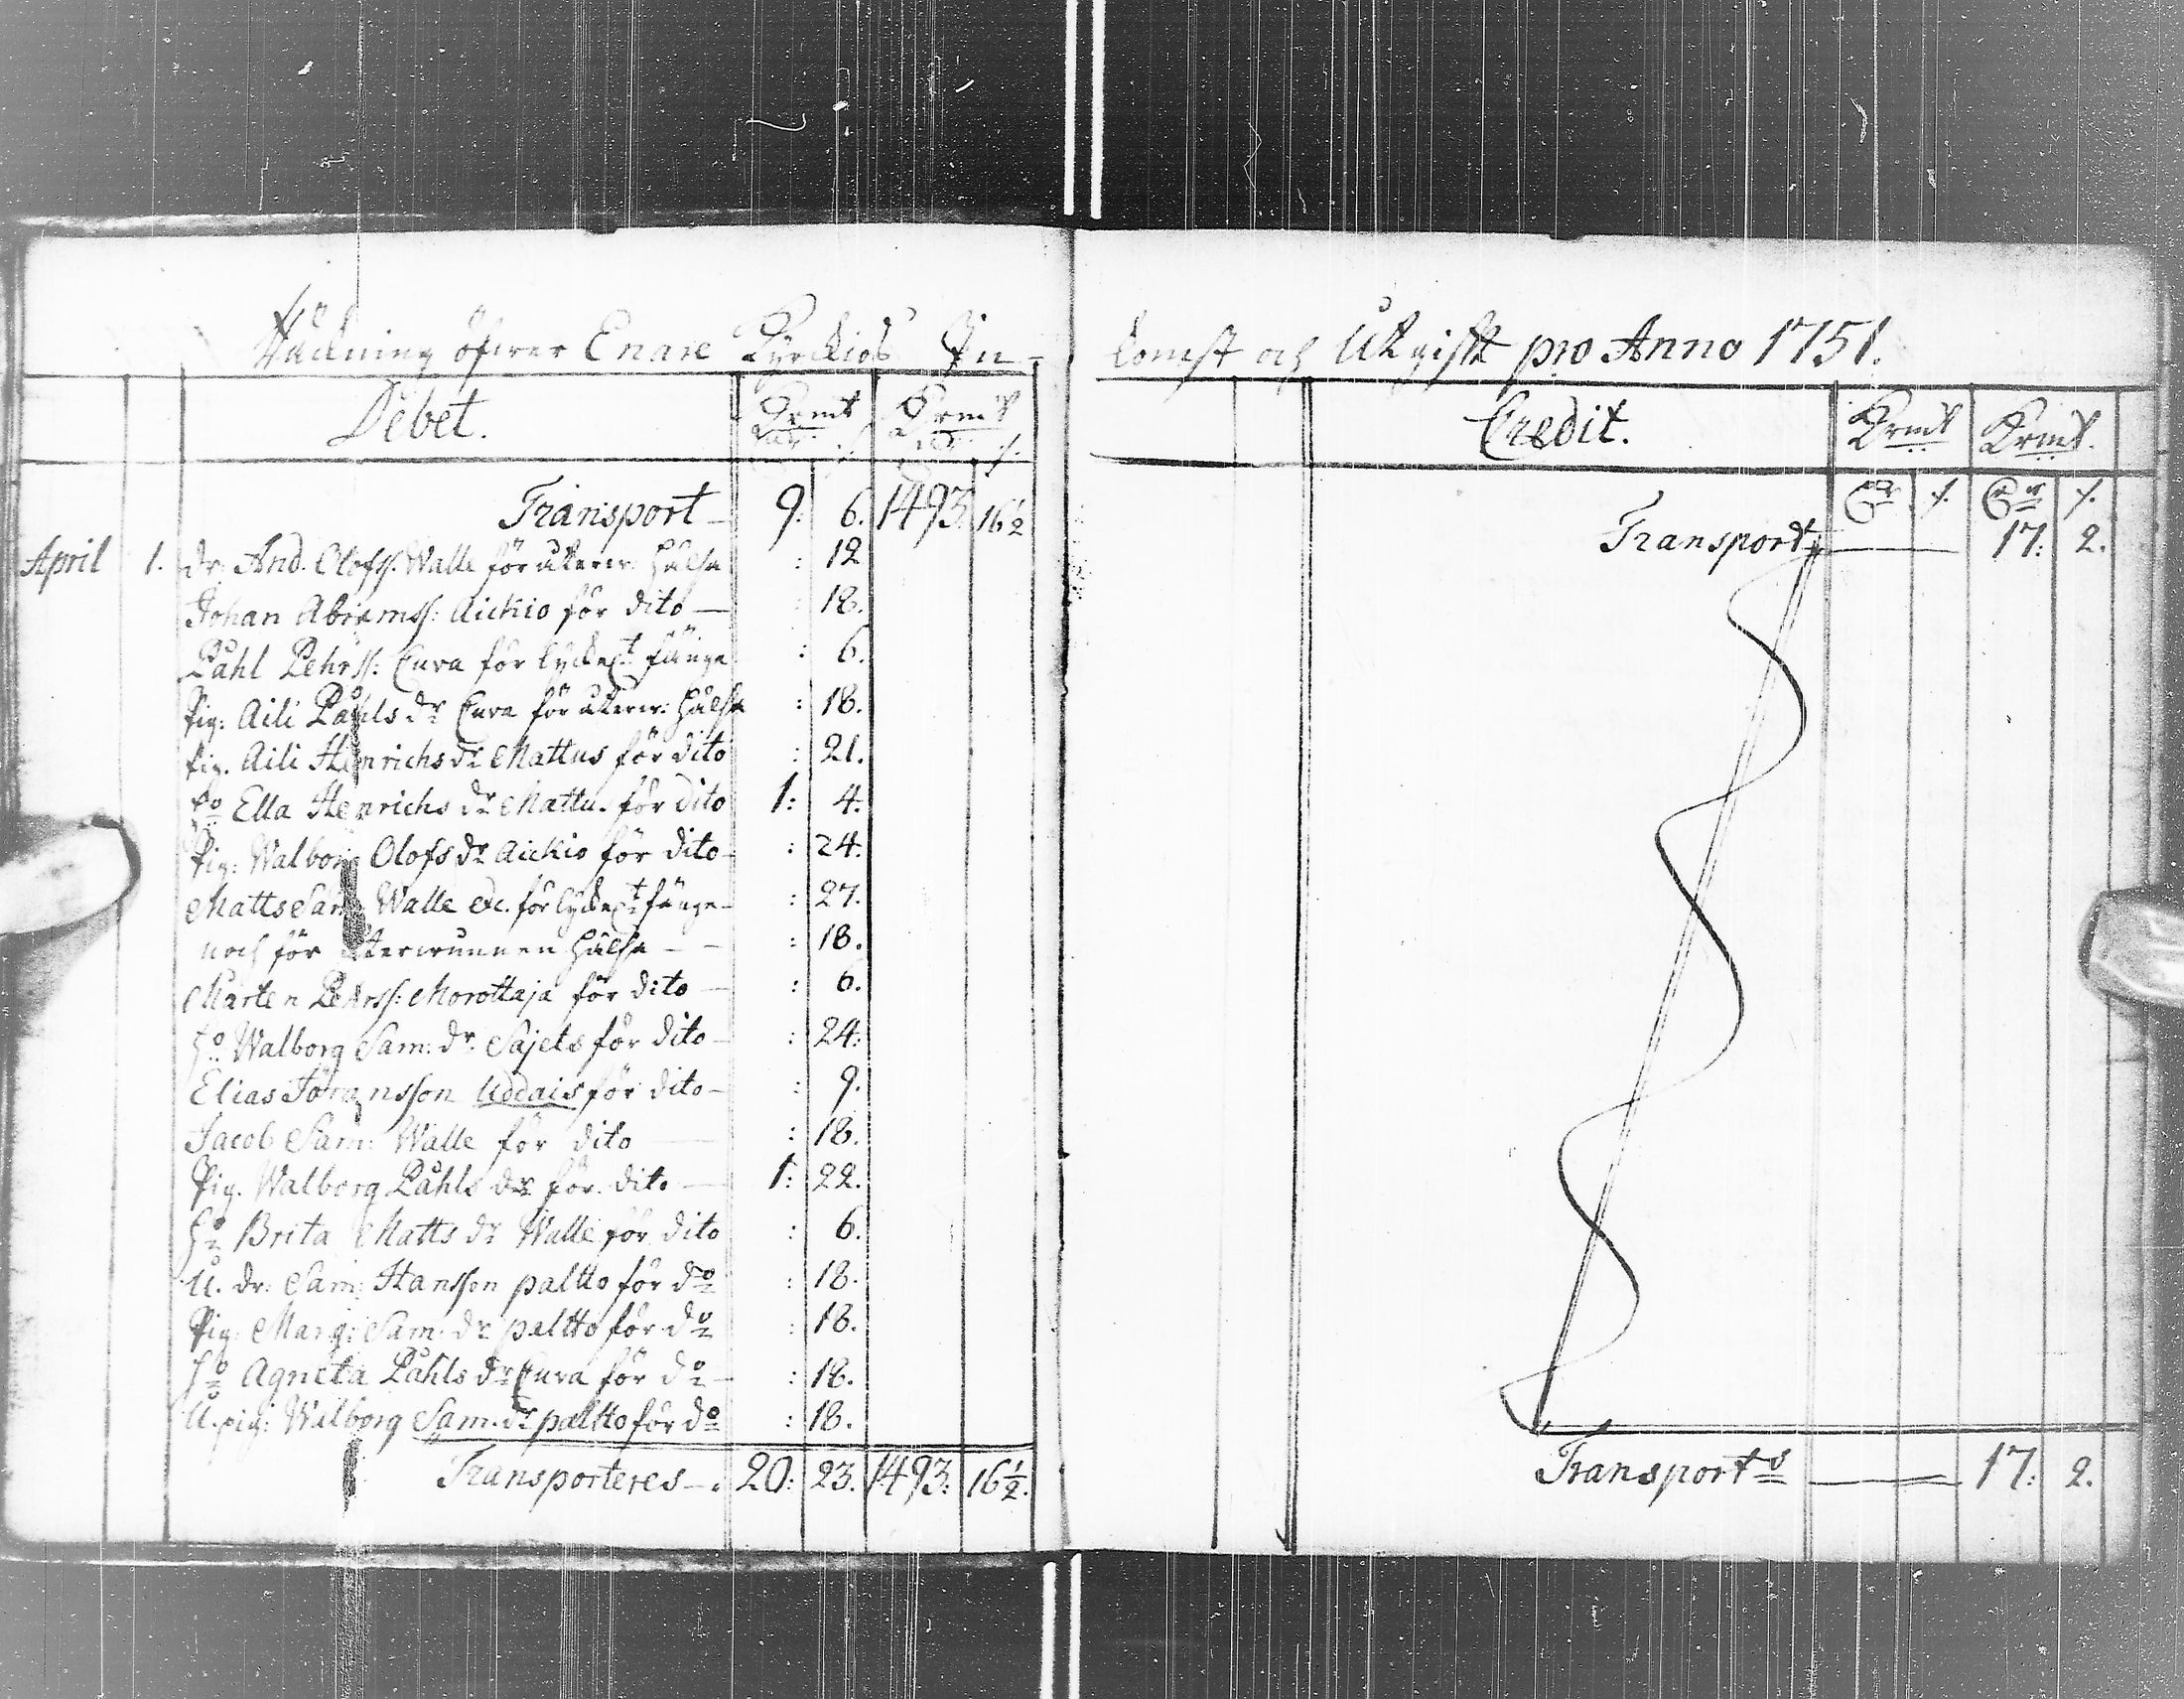 Räckning öfwer Enare Kyrckios In-
Debet. Krmt Krmt
Dar. /. Dr. /.
Transport 9. 6. 1493. 16½
April 1. dr. And. Olofss. Walle för återw. hälsa : 12
Johan Abramss: Aickio för dito : 18.
Påhl Pehrss: Cuva för lyckel:t fånge : 6.
Pig: Aili Påhls dr Cuva för återw: hälsa : 18.
Pig. Aili Henrichs dr Mattus för dito : 21.
Do Ella Henrichs dr Mattu. för dito 1: 4.
Pig: Walborg Olofs dr Aickio för dito : 24.
Matts Sam: Walle etc. för lyckel:t fånge : 27.
noch för återwunnen hälsa : 18.
Mårten Pehrss: Morottaja för dito : 6.
ho Walborg Sam: dr. Sajets för dito : 24.
Elias Joransson Uddais för dito : 9.
Jacob Sam: Walle för dito : 18.
Pig. Walborg Påhls dr för dito 1: 22.
ho Brita Matts dr Walle för dito : 6.
U. dr. Sam: Hansson paltto för do : 18.
Pig. Marg: Sam: dr paltto för do : 18.
ho Agneta Påhls dr Cuva för do : 18.
U. pig: Walborg Sam. dr paltto för do : 18.
Transporteres 20: 23. 1493. 16½.
komst och Utgifft pro Anno 1751.
Credit. Krmt Krmt.
Dr /. Dr /.
Transport 17: 2.
Transports 17: 2.